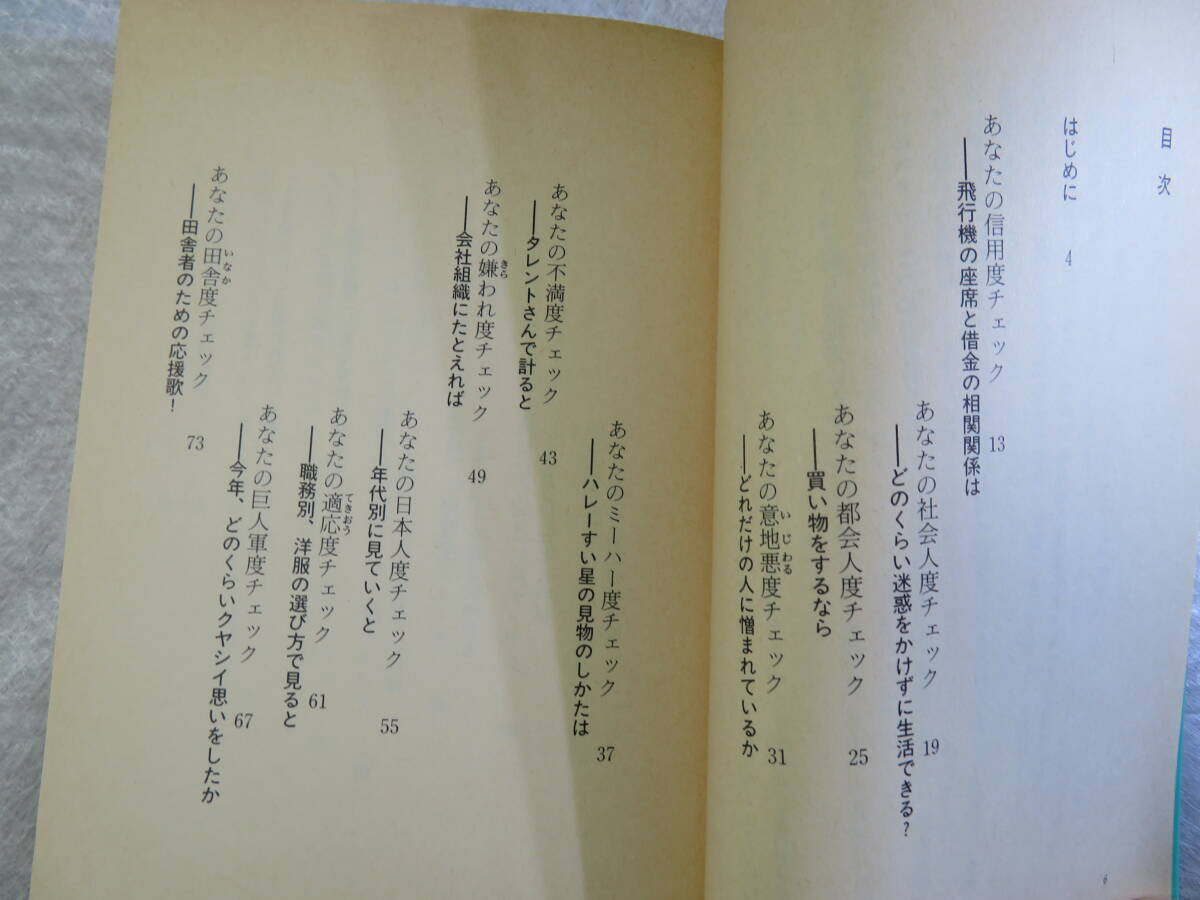 目次
はじめに 4
あなたの信用度チェック 13
――飛行機の座席と借金の相関関係は
あなたの社会人度チェック 19
――どのくらい迷惑をかけずに生活できる?
あなたの都会人度チェック 25
――買い物をするなら
あなたの意地悪度チェック 31
いじわる
――どれだけの人に憎まれているか
6
あなたのミーハー度チェック 37
――ハレーすい星の見物のしかたは
あなたの不満度チェック 43
――タレントさんで計ると
あなたの嫌われ度チェック 49
きら
――会社組織にたとえれば
あなたの日本人度チェック 55
――年代別に見ていくと
あなたの適応度チェック 61
てきおう
――職務別、洋服の選び方で見ると
あなたの巨人軍度チェック 67
――今年、どのくらいクヤシイ思いをしたか
あなたの田舎度チェック 73
いなか
――田舎者のための応援歌!